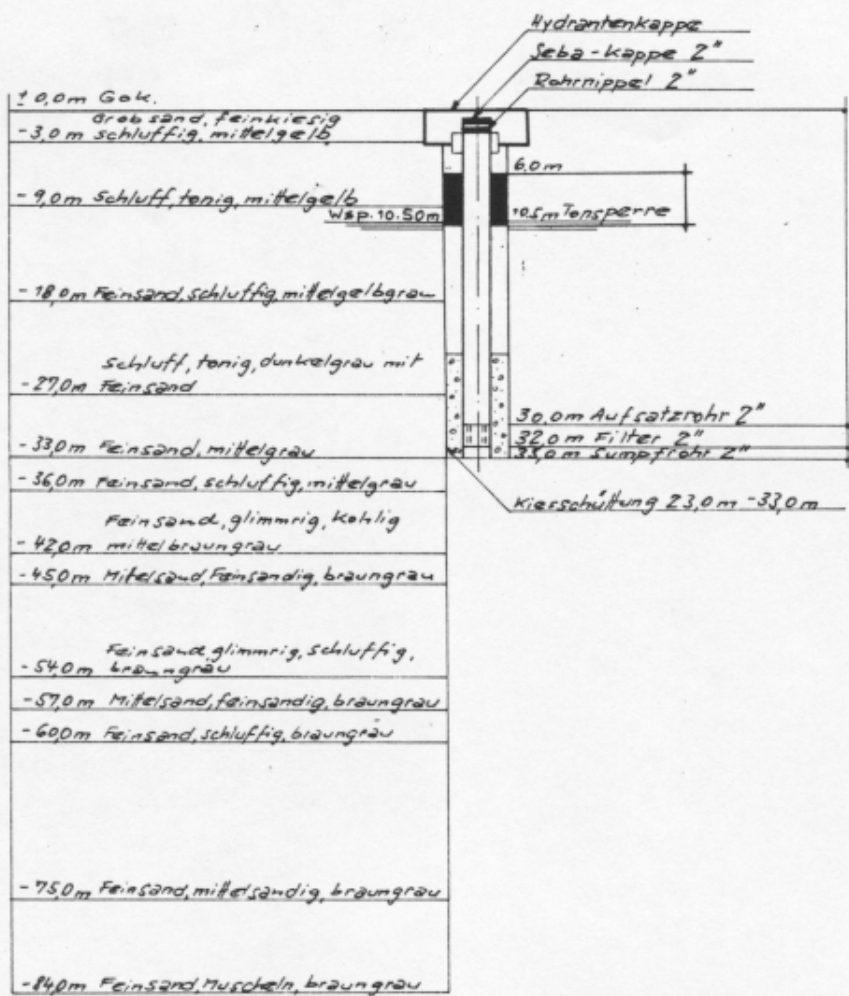 Hydrantenkappe
Seba-Kappe 2"
Rohrnippel 2"
± 0,0m Gok.
Grobsand, feinkiesig
-3,0m schluffig, mittelgelb
6.0m
-9,0m Schluff, tonig, mittelgelb
Wsp. 10.50m
10.5m Tonsperre
-18,0m Feinsand, schluffig, mittelgelbgrau
Schluff, tonig, dunkelgrau mit
-27,0m Feinsand
30.0m Aufsatzrohr 2"
32.0m Filter 2"
-33,0m Feinsand, mittelgrau
33,0m Sumpfrohr 2"
-36,0m Feinsand, schluffig, mittelgrau
Kiesschüttung 23,0m -33,0m
Feinsand, glimmrig, kohlig
-42,0m mittelbraungrau
-45,0m Mittelsand, Feinsandig, braungrau
Feinsand, glimmrig, schluffig,
-54,0m braungrau
-57,0m Mittelsand, feinsandig, braungrau
-60,0m Feinsand, schluffig, braungrau
-75,0m Feinsand, mittelsandig, braungrau
-84,0m Feinsand, Muscheln, braungrau